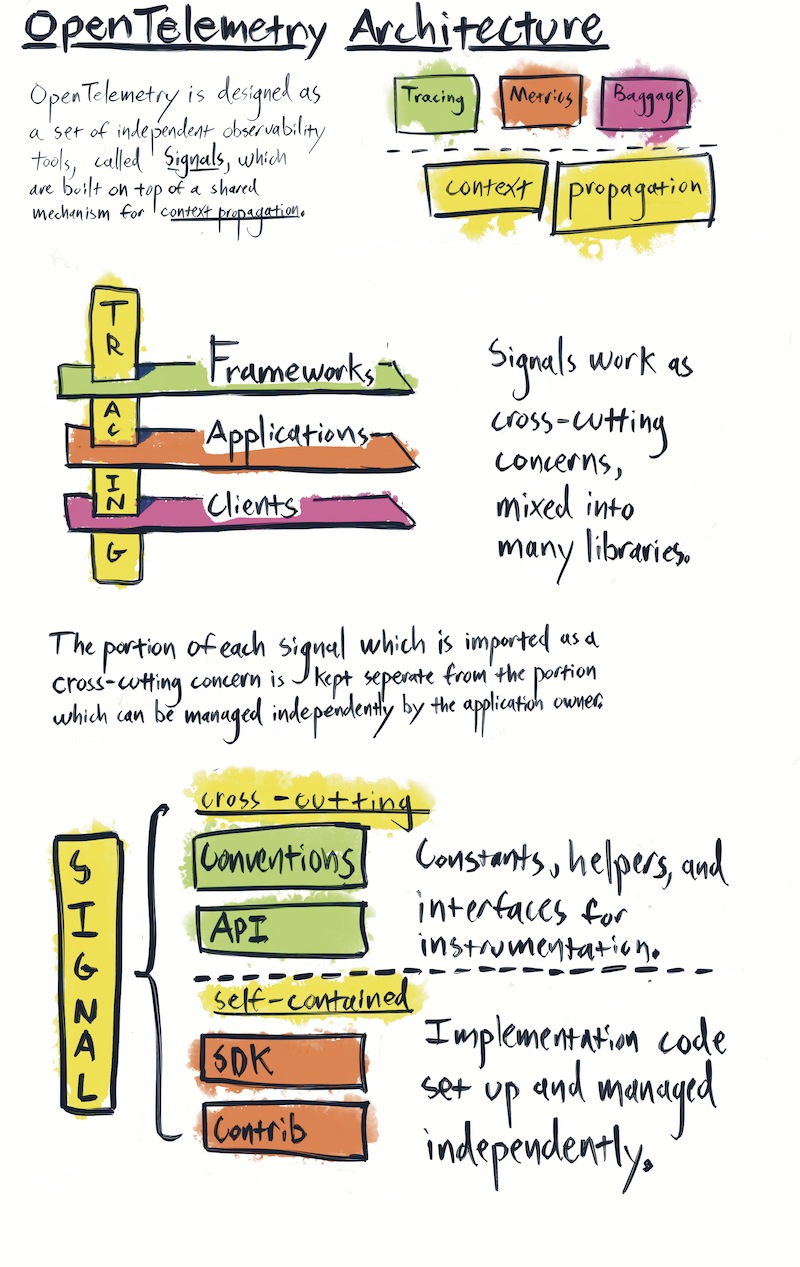 OpenTelemetry Architecture
OpenTelemetry is designed as
a set of independent observability
tools, called Signals, which
are built on top of a shared
mechanism for context propagation.
Tracing Metrics Baggage
context propagation
TRACING
Frameworks
Applications
Clients
Signals work as
cross-cutting
concerns,
mixed into
many libraries.
The portion of each signal which is imported as a
cross-cutting concern is kept seperate from the portion
which can be managed independently by the application owner.
SIGNAL
cross-cutting
Conventions
API
Constants, helpers, and
interfaces for
instrumentation.
self-contained
SDK
Contrib
Implementation code
set up and managed
independently.